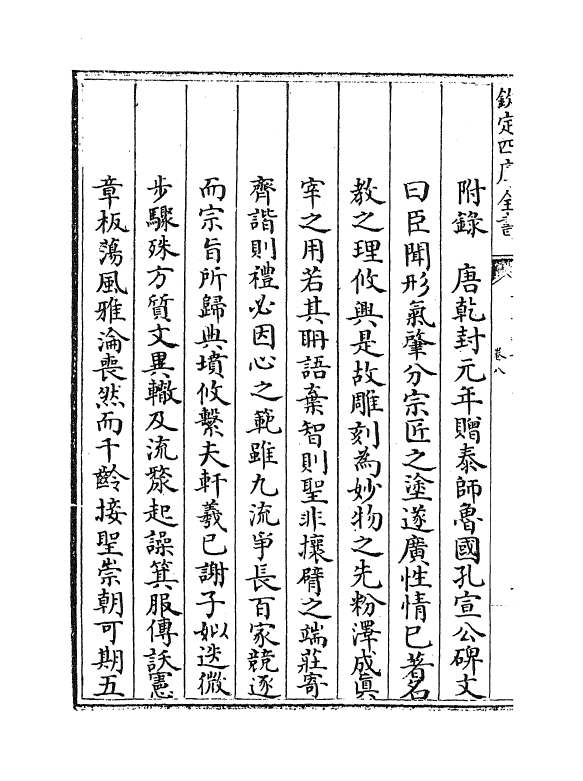 欽定四庫全書
卷八
附錄　唐乾封元年贈泰師魯國孔宣公碑文
曰臣聞形氣肇分宗匠之塗遂廣性情已著名
教之理攸興是故雕刻為妙物之先粉澤成真
宰之用若其明語棄智則聖非攘臂之端莊寄
齊諧則禮必因心之範雖九流爭長百家競逐
而宗旨所歸典墳攸繫夫軒羲已謝子姒迭微
步驟殊方質文異轍及流漦起譟箕服傳訞憲
章板蕩風雅淪喪然而千齡接聖崇朝可期五